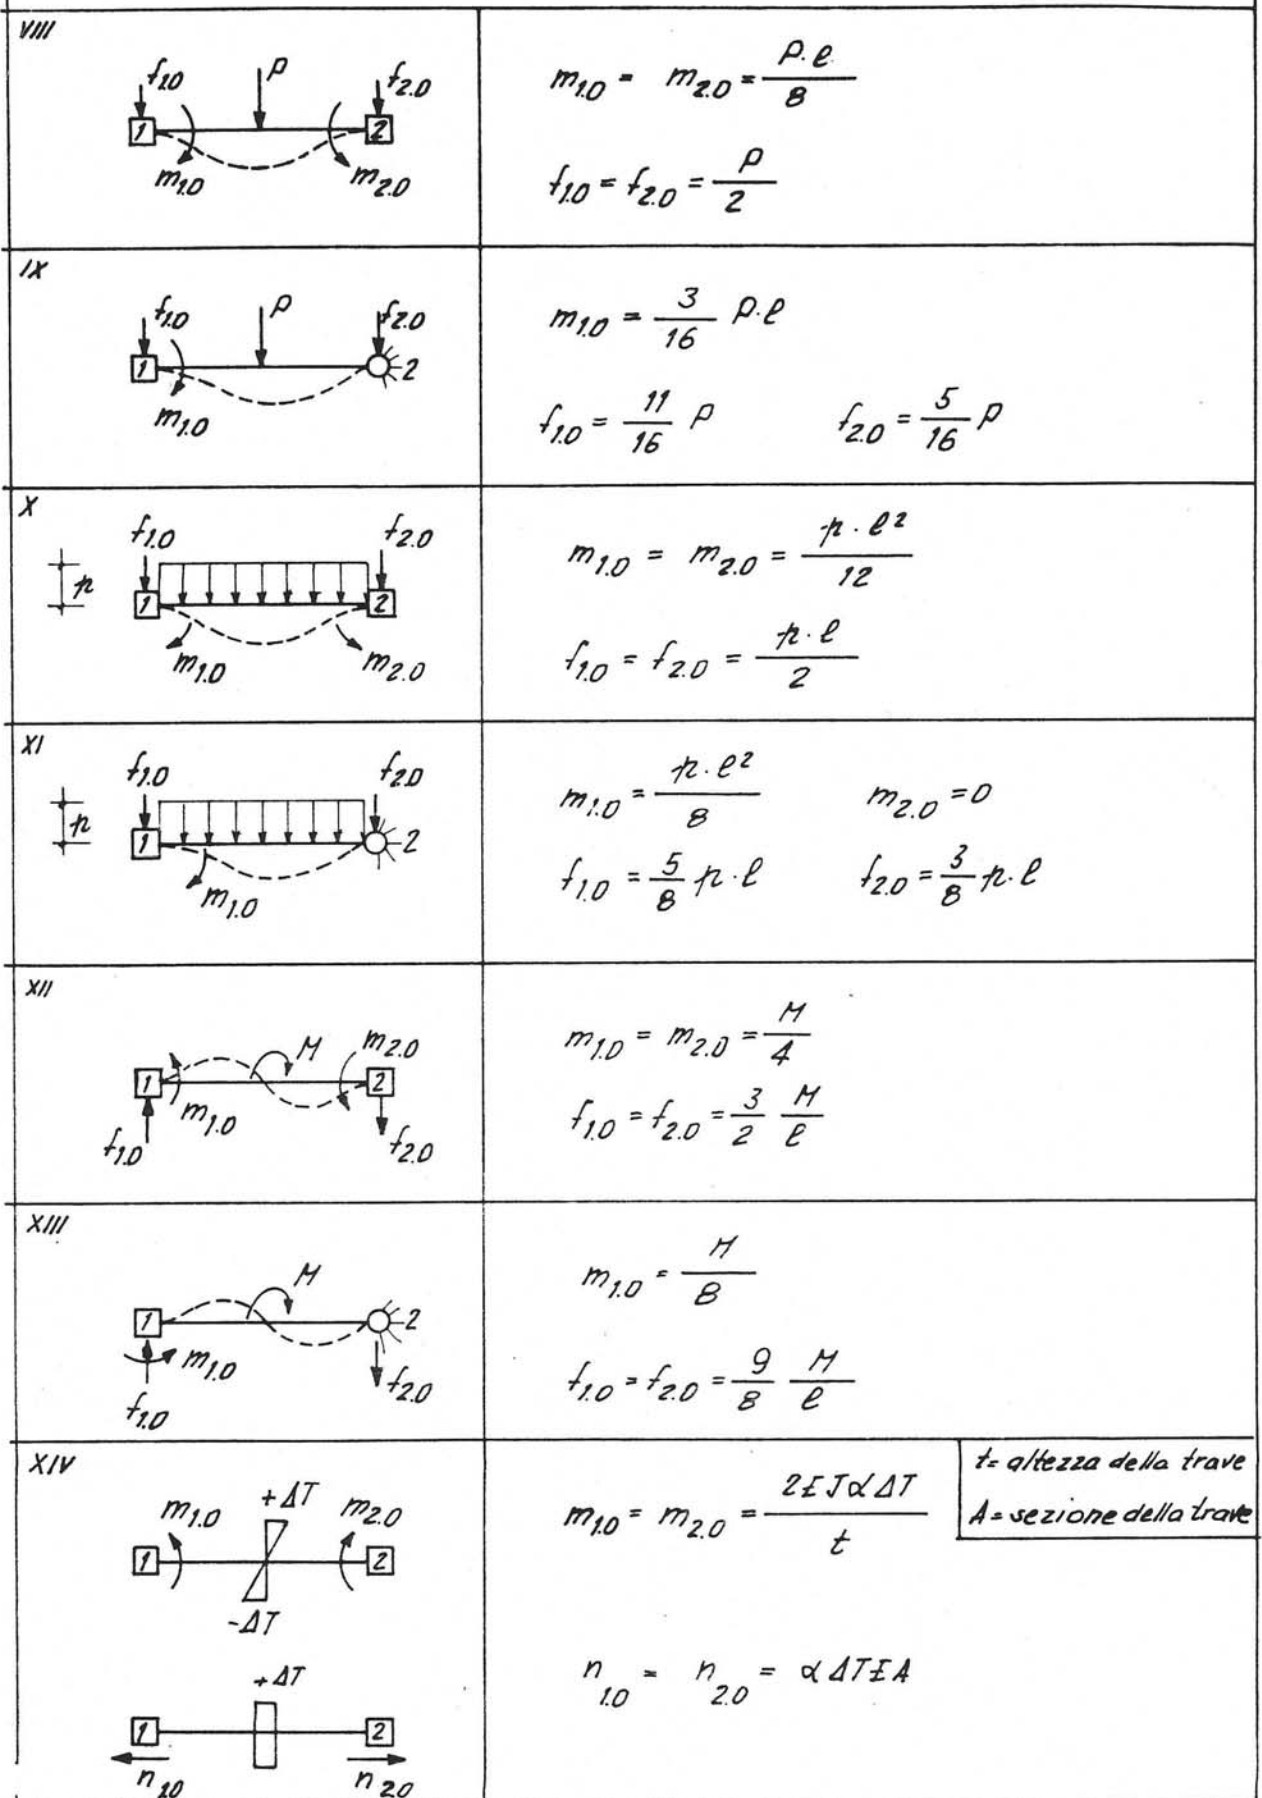 VIII
f1.0 P f2.0
1 2
m1.0 m2.0
m1.0 = m2.0 = P·l / 8
f1.0 = f2.0 = P / 2
IX
f1.0 P f2.0
1 2
m1.0
m1.0 = 3/16 P·l
f1.0 = 11/16 P f2.0 = 5/16 P
X
f1.0 f2.0
p 1 2
m1.0 m2.0
m1.0 = m2.0 = p·l² / 12
f1.0 = f2.0 = p·l / 2
XI
f1.0 f2.0
p 1 2
m1.0
m1.0 = p·l² / 8 m2.0 = 0
f1.0 = 5/8 p·l f2.0 = 3/8 p·l
XII
M m2.0
1 2
m1.0
f1.0 f2.0
m1.0 = m2.0 = M / 4
f1.0 = f2.0 = 3/2 M/l
XIII
M
1 2
m1.0 f2.0
f1.0
m1.0 = M / 8
f1.0 = f2.0 = 9/8 M/l
XIV
m1.0 +ΔT m2.0
1 2
-ΔT
m1.0 = m2.0 = 2EJαΔT / t
t= altezza della trave
A= sezione della trave
+ΔT
1 2
n1.0 n2.0
n1.0 = n2.0 = αΔTEA